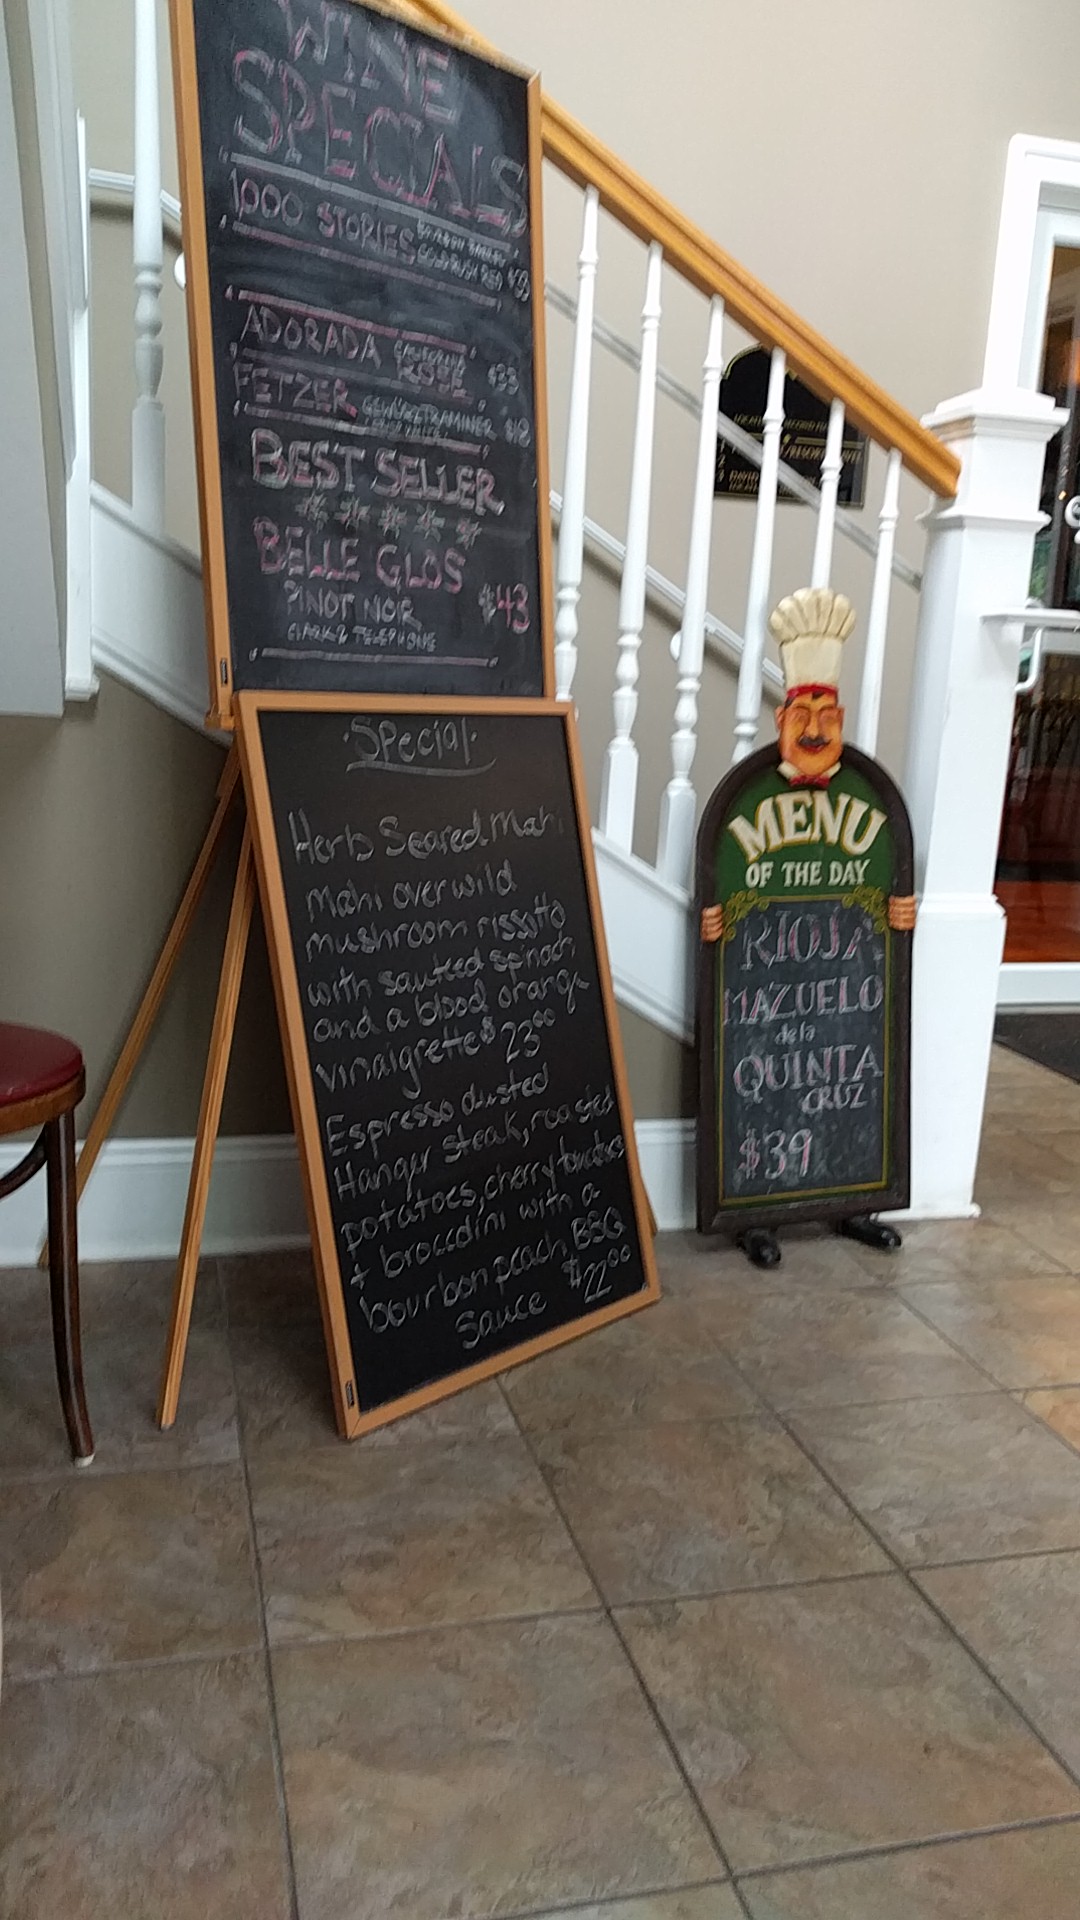 WINE
SPECIALS
1000 STORIES
GOLD RUSH RED
ADORADA CALIFORNIA
ROSE $33
FETZER GEWÜRZTRAMINER $18
BEST SELLER
BELLE GLOS
PINOT NOIR $43
CLARK & TELEPHONE
·Special·
Herb Seared Mahi
Mahi over wild
mushroom rissotto
with sauteed spinach
and a blood orange
vinaigrette $23⁰⁰
Espresso dusted
Hanger steak, roasted
potatoes, cherry tomatoes
+ broccolini with a
bourbon peach BBQ
Sauce $22⁰⁰
MENU
OF THE DAY
RIOJA
MAZUELO
de la
QUINTA
CRUZ
$39